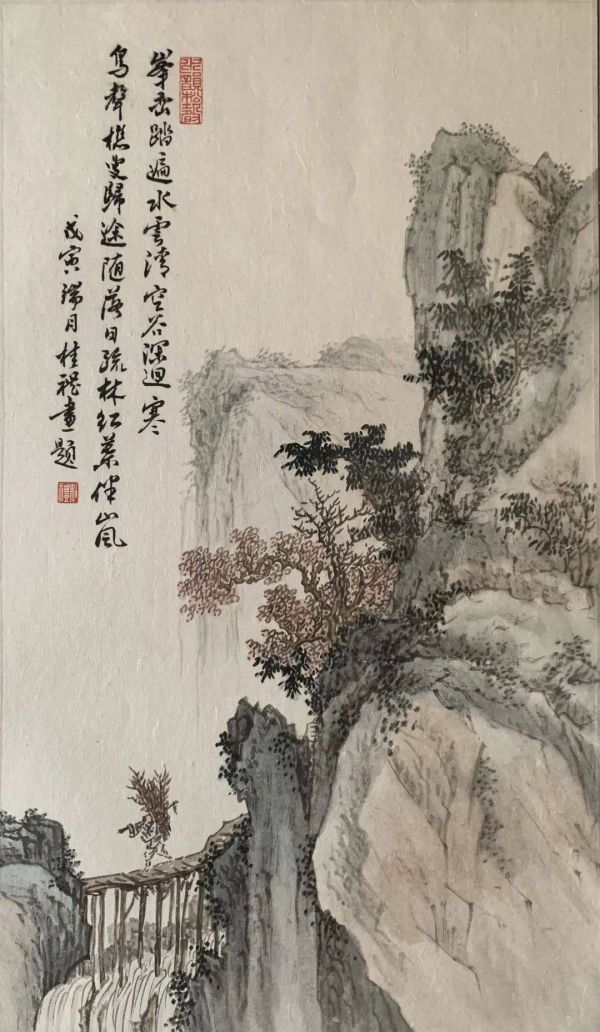 峯峦踏遍水雲清空谷深迴寒
鳥聲樵叟歸途随落日疏林红葉伴山嵐
戊寅瑞月桂禮畫題